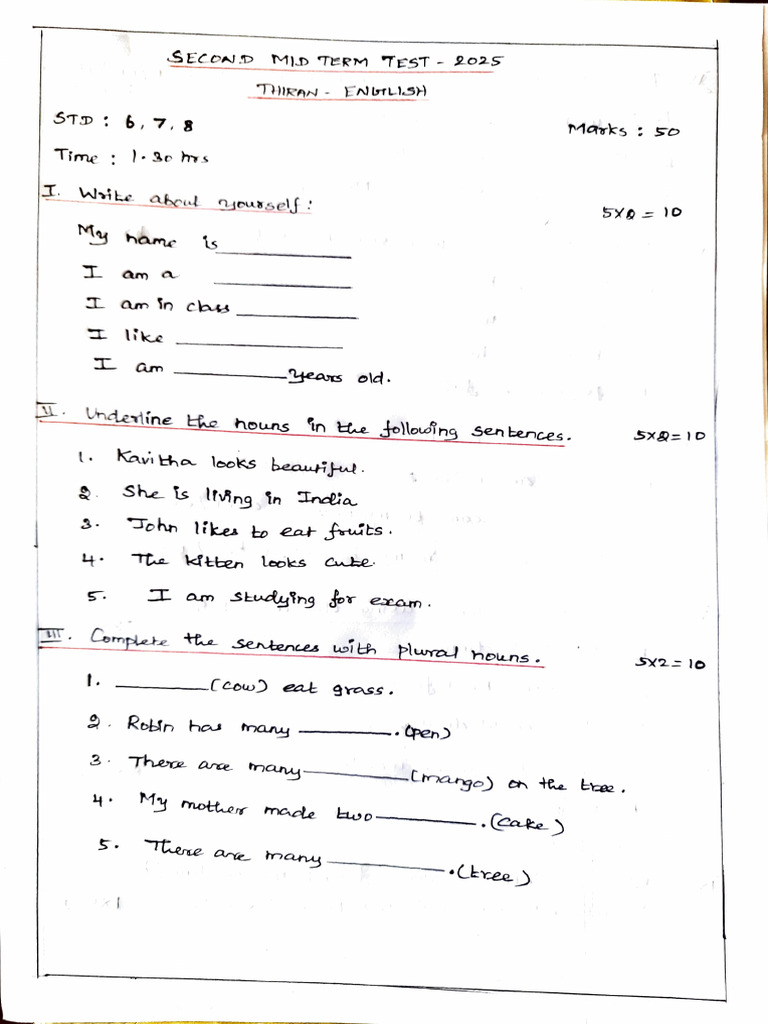 SECOND MID TERM TEST - 2025
THIRAN - ENGLISH
STD : 6, 7, 8
Marks : 50
Time : 1.30 hrs
I. Write about yourself:
5x2 = 10
My name is ____________
I am a ____________
I am in class ____________
I like ____________
I am ____________ years old.
II. Underline the nouns in the following sentences.
5x2=10
1. Kavitha looks beautiful.
2. She is living in India
3. John likes to eat fruits.
4. The kitten looks cute.
5. I am studying for exam.
III. Complete the sentences with plural nouns.
5x2=10
1. ________ (cow) eat grass.
2. Robin has many ________. (pen)
3. There are many ________ (mango) on the tree.
4. My mother made two ________. (cake)
5. There are many ________. (tree)